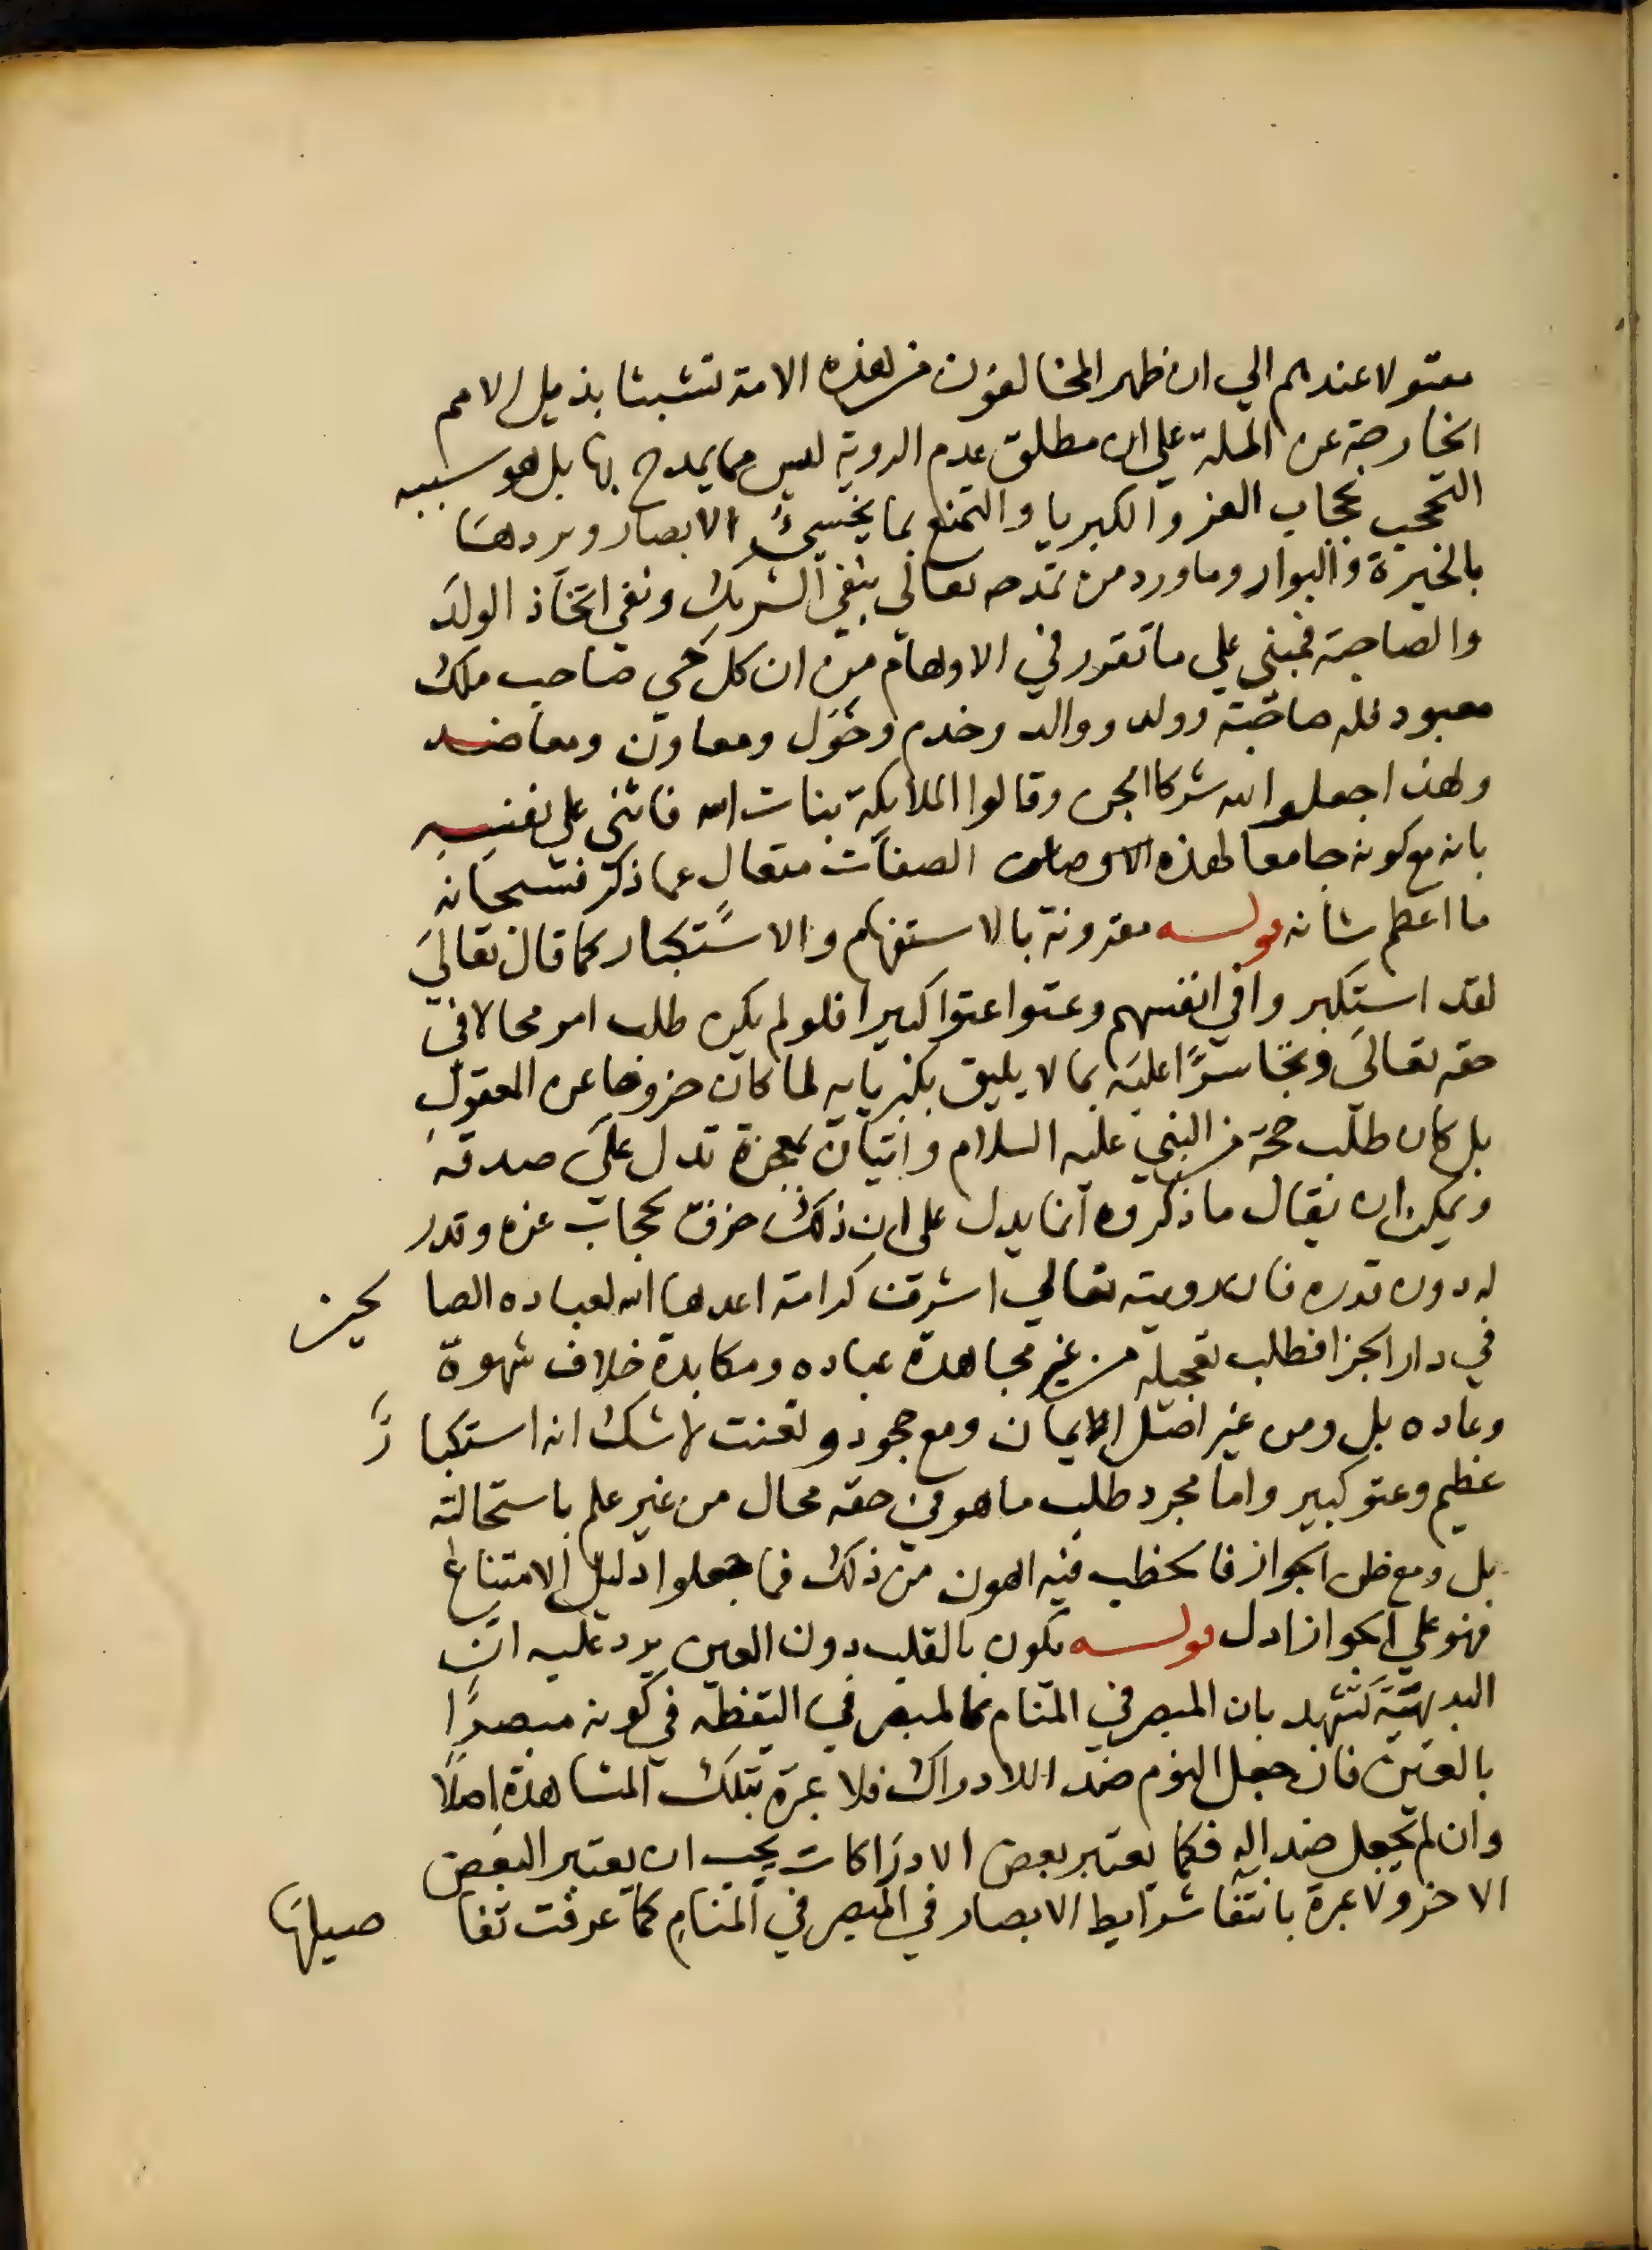 معتولا عندهم الي ان ظهر المخالفون من هذه الامة تشبثا بذيل الامم
الخارجة عن الملة علي ان مطلق عدم الروية ليس مما يمدح بها بل هو سببه
التحجب بحجاب العز والكبريا والتمنع بما يخسئ الابصار ويردها
بالخيرة والبوار وما ورد من تمدحه تعالي بنفي الشريك ونفي اتخاذ الولد
والصاحبة فمبني علي ما تقرر في الاوهام من ان كل حي صاحب ملك
معبود فله صاحبة وولد ووالد وخدم وخول ومعاون ومعاضد
ولهذا جعلوا لله شركا الجن وقالوا الملايكة بنات الله فاثني علي نفسه
بانه مع كونه جامعا لهذه الاوصاف الصفات متعال عما ذكر فسبحانه
ما اعظم شانه قولـــه مقرونة بالاستفهام والاستكبار كما قال تعالي
لقد استكبروا في انفسهم وعتوا عتوا كبيرا فلو لم يكن طلب امر محالا في
حقه تعالي وتجاسرا عليه بما لا يليق بكبريايه لما كان خروجا عن المعقول
بل كان طلب حجة من النبي عليه السلام واتيان بمعجزة تدل علي صدقه
ويمكن ان يقال ما ذكروه انما يدل علي ان ذلك خرق بحجاب عزه وقدر
له دون قدره فان رويته تعالي اشرف كرامة اعدها الله لعباده الصا لحين
في دار الجزا فطلب تعجيله من غير مجاهدة عباده ومكابدة خلاف شهوة
وعاده بل ومن غير اصل الايمان ومع جحود وتعنت لا شك انه استكبا رً
عظيم وعتو كبير واما مجرد طلب ما هو في حقه محال من غير علم باستحالته
بل ومع ظن الجواز فالخطب فيه اهون من ذلك فما جعلوا دليل الامتناع
فهو علي الجواز ادل قولـــه يكون بالقلب دون العين يرد عليه ان
البديهة تشهد بان المبصر في المنام كالمبصر في اليقظة في كونه مبصرا
بالعين فان جعل النوم ضد اللادراك فلا عبرة بتلك المشاهدة اصلا
وان لم يجعل ضد اله فكما يعتبر بعض الادراكات يجب ان يعتبر البعض
الاخر ولا عبرة بانتفا شرايط الابصار في المبصر في المنام كما عرفت تفا صيلها